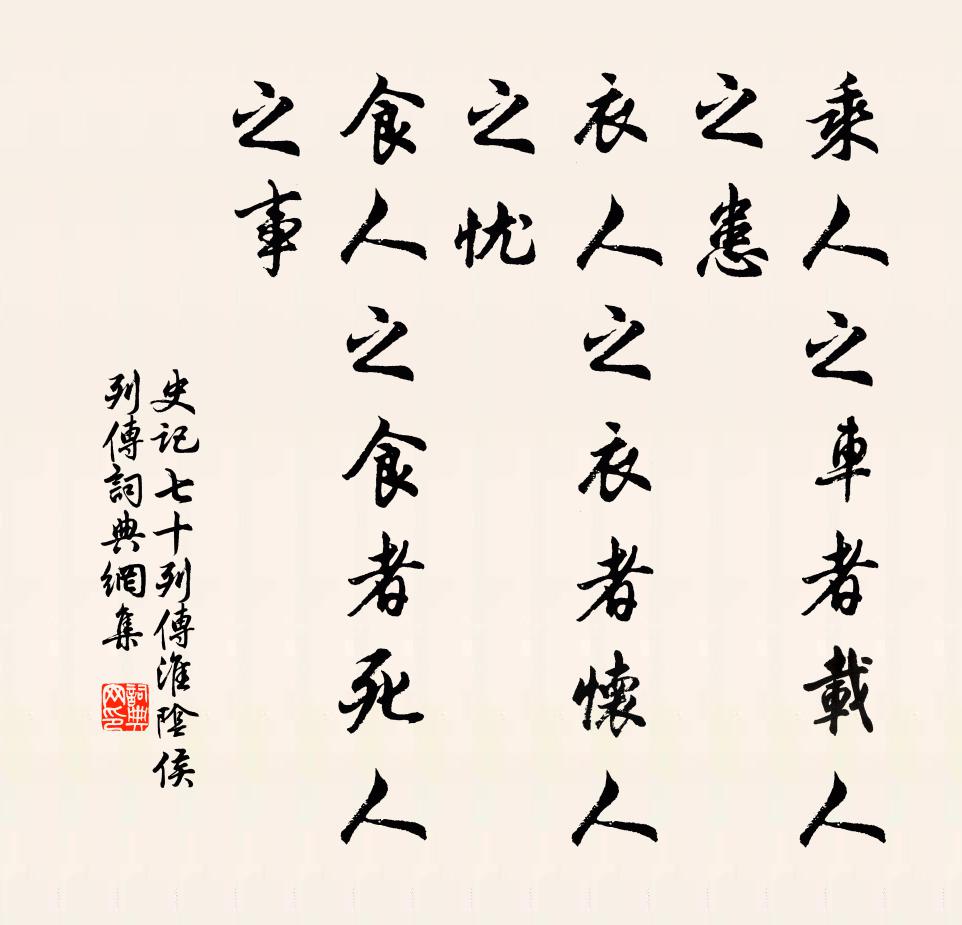 乘人之車者載人
之患
衣人之衣者懷人
之忧
食人之食者死人
之事
史记七十列傳淮陰侯
列傳詞典網集
詞典
网印